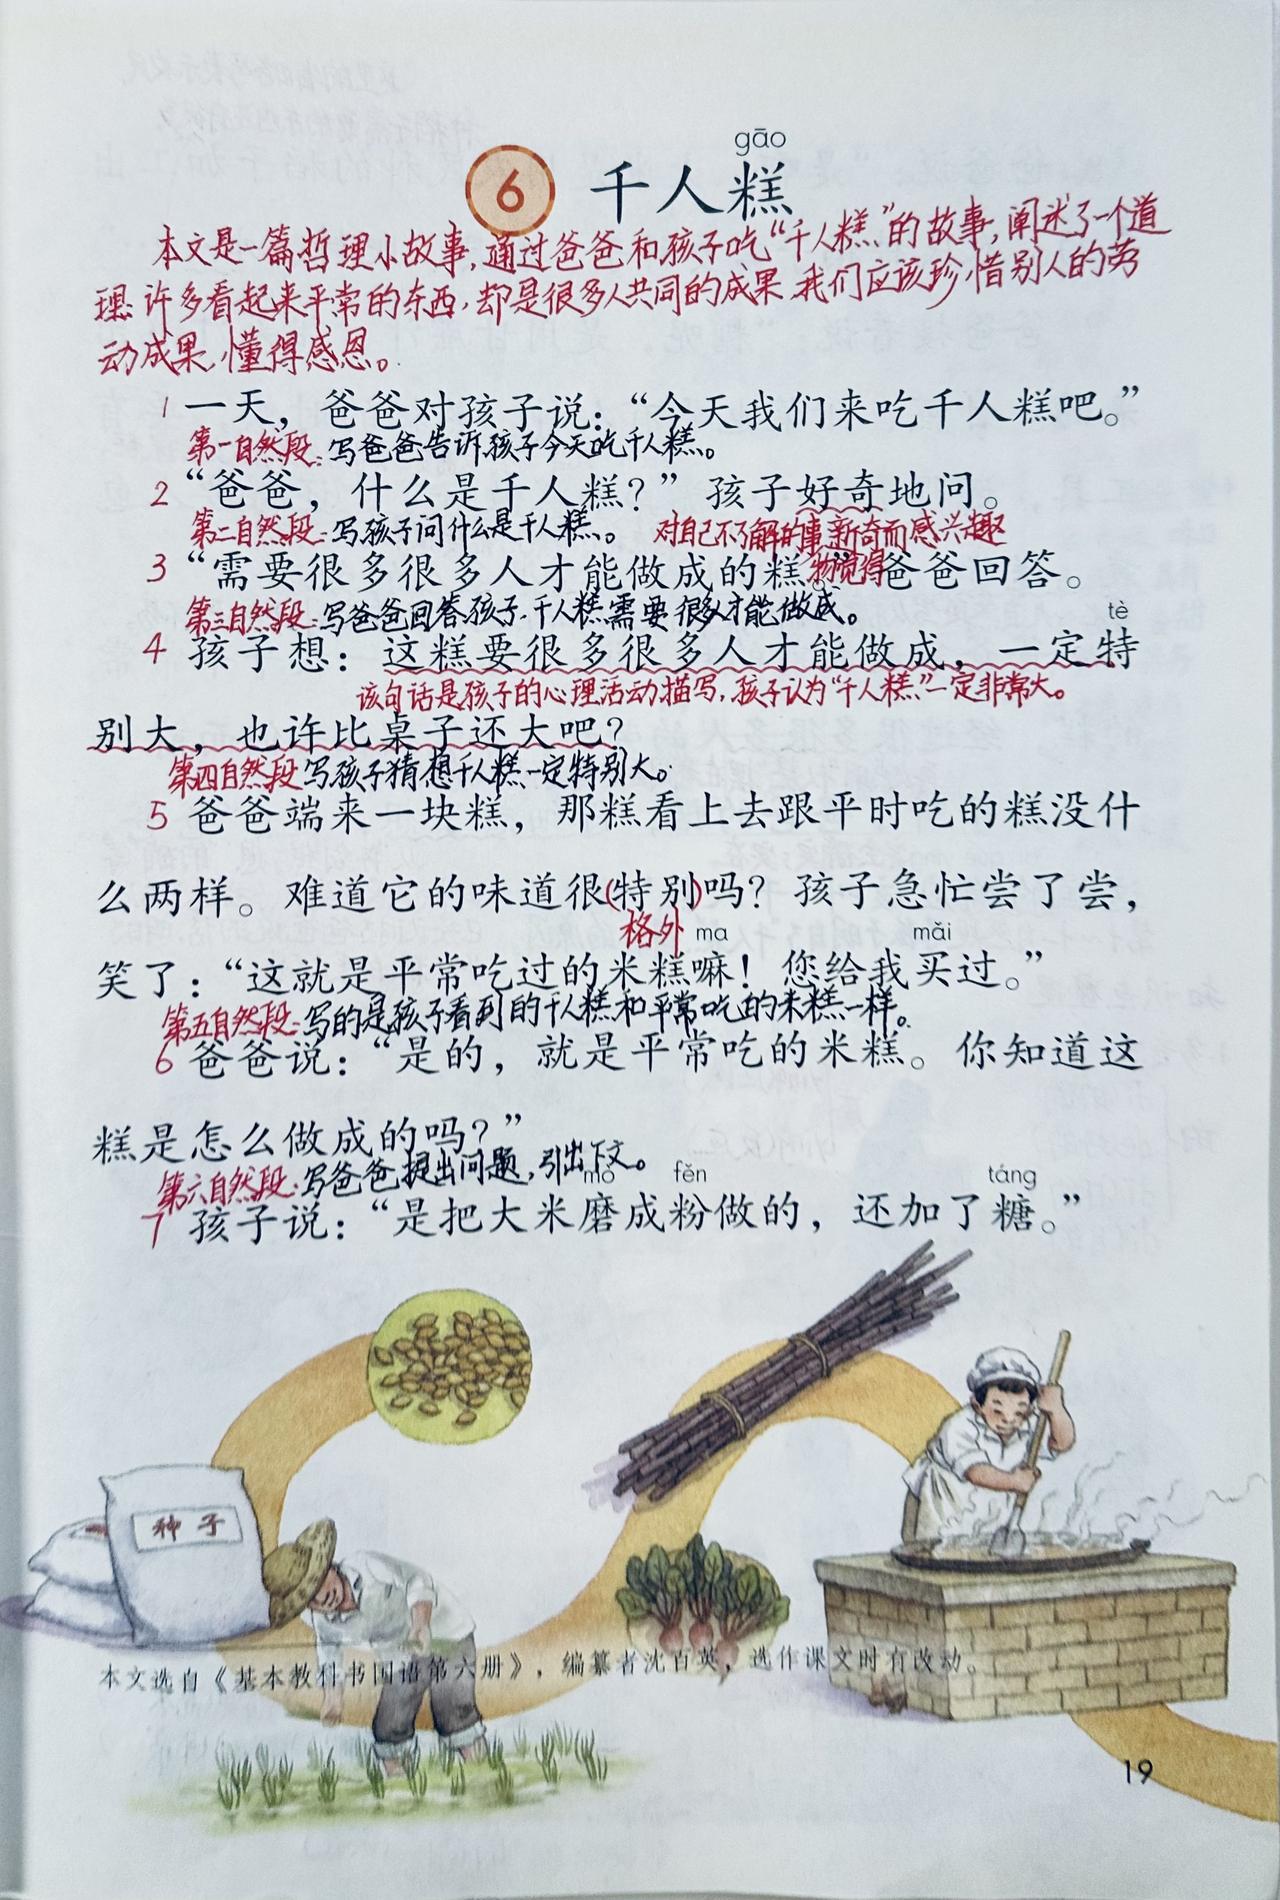 gāo
6 千人糕
本文是一篇哲理小故事,通过爸爸和孩子吃“千人糕”的故事,阐述了一个道
理:许多看起来平常的东西,却是很多人共同的成果,我们应该珍惜别人的劳
动成果,懂得感恩。
1 一天，爸爸对孩子说：“今天我们来吃千人糕吧。”
第一自然段:写爸爸告诉孩子今天吃千人糕。
2 “爸爸，什么是千人糕？”孩子好奇地问。
第二自然段:写孩子问什么是千人糕。 对自己不了解的事新奇而感兴趣
3 “需要很多很多人才能做成的糕。”爸爸回答。
物觉得
第三自然段:写爸爸回答孩子,千人糕需要很多人才能做成。
tè
4 孩子想：这糕要很多很多人才能做成，一定特
该句话是孩子的心理活动描写,孩子认为“千人糕”一定非常大。
别大，也许比桌子还大吧？
第四自然段 写孩子猜想千人糕一定特别大。
5 爸爸端来一块糕，那糕看上去跟平时吃的糕没什
么两样。难道它的味道很(特别)吗？孩子急忙尝了尝，
格外 ma mǎi
笑了：“这就是平常吃过的米糕嘛！您给我买过。”
第五自然段:写的是孩子看到的千人糕和平常吃的米糕一样。
6 爸爸说：“是的，就是平常吃的米糕。你知道这
糕是怎么做成的吗？”
第六自然段:写爸爸提出问题,引出下文。
mò fěn táng
7 孩子说：“是把大米磨成粉做的，还加了糖。”
种子
本文选自《基本教科书国语第六册》，编纂者沈百英，选作课文时有改动。
19